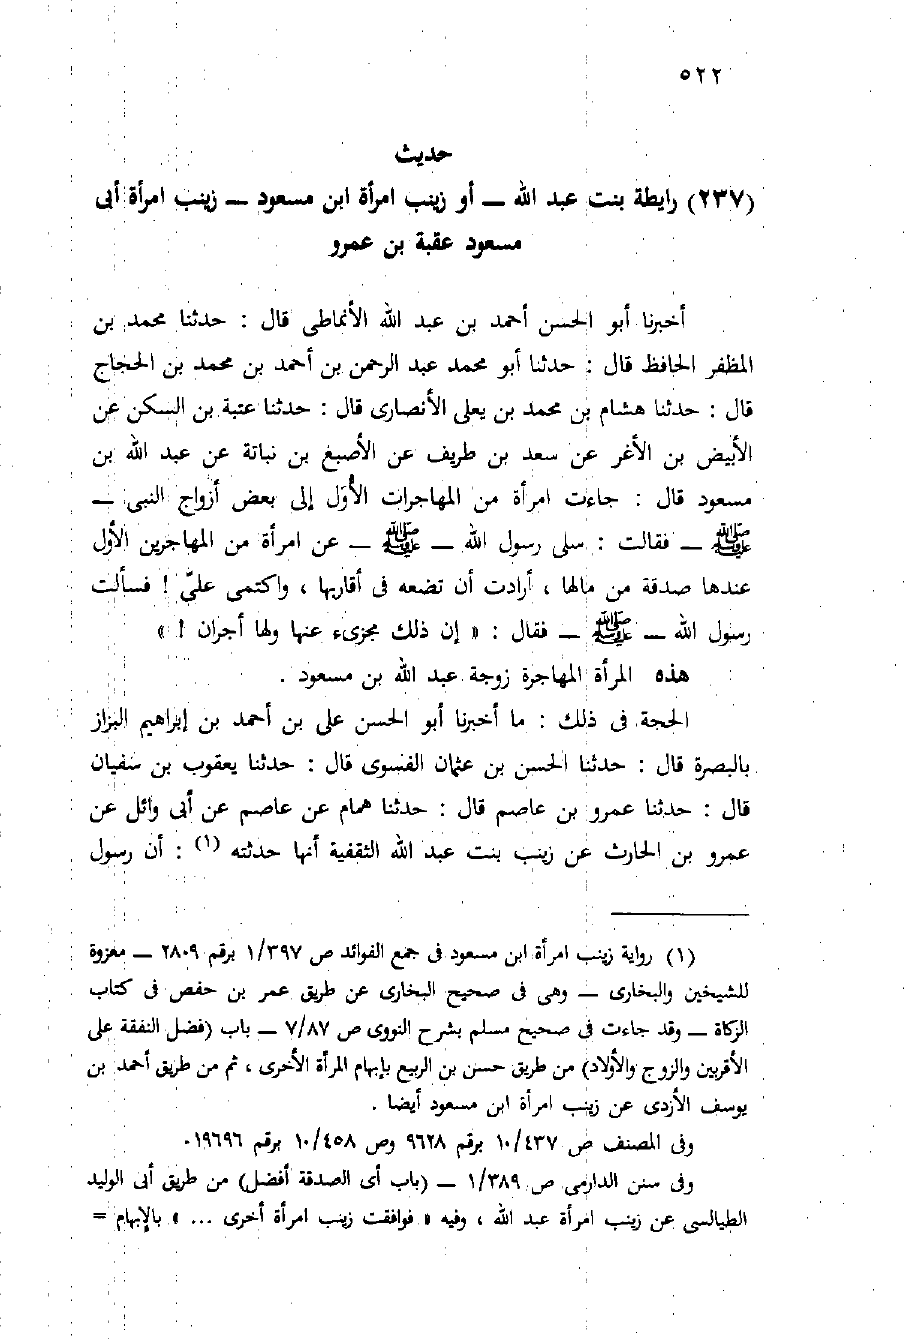 ٥٢٢
حديث
(٢٣٧) رايطة بنت عبد الله ــ أو زينب امرأة ابن مسعود ــ زينب امرأة أبى
مسعود عقبة بن عمرو
أخبرنا أبو الحسن أحمد بن عبد الله الأنماطى قال : حدثنا محمد بن
المظفر الحافظ قال : حدثنا أبو محمد عبد الرحمن بن أحمد بن محمد بن الحجاج
قال : حدثنا هشام بن محمد بن يعلى الأنصارى قال : حدثنا عتبة بن السكن عن
الأبيض بن الأغر عن سعد بن طريف عن الأصبغ بن نباتة عن عبد الله بن
مسعود قال : جاءت امرأة من المهاجرات الأُوَل إلى بعض أزواج النبى ــ
ﷺ ــ فقالت : سلى رسول الله ــ ﷺ ــ عن امرأة من المهاجرين الأول
عندها صدقة من مالها ، أرادت أن تضعه فى أقاربها ، واكتمى علىّ ! فسألت
رسول الله ــ ﷺ ــ فقال : « إن ذلك مجزىء عنها ولها أجران ! »
هذه المرأة المهاجرة زوجة عبد الله بن مسعود .
الحجة فى ذلك : ما أخبرنا أبو الحسن على بن أحمد بن إبراهيم البزاز
بالبصرة قال : حدثنا الحسن بن عثمان الفسوى قال : حدثنا يعقوب بن سفيان
قال : حدثنا عمرو بن عاصم قال : حدثنا همام عن عاصم عن أبى وائل عن
عمرو بن الحارث عن زينب بنت عبد الله الثقفية أنها حدثته (١) : أن رسول
(١) رواية زينب امرأة ابن مسعود فى جمع الفوائد ص ١/٣٩٧ برقم ٢٨٠٩ ــ معزوة
للشيخين والبخارى ــ وهى فى صحيح البخارى عن طريق عمر بن حفص فى كتاب
الزكاة ــ وقد جاءت فى صحيح مسلم بشرح النووى ص ٧/٨٧ ــ باب (فضل النفقة على
الأقربين والزوج والأولاد) من طريق حسن بن الربيع بإبهام المرأة الأخرى ، ثم من طريق أحمد بن
يوسف الأزدى عن زينب امرأة ابن مسعود أيضا .
وفى المصنف ص ١٠/٤٣٧ برقم ٩٦٢٨ وص ١٠/٤٥٨ برقم ١٩٦٩٦.
وفى سنن الدارمى ص ١/٣٨٩ ــ (باب أى الصدقة أفضل) من طريق أبى الوليد
الطيالسى عن زينب امرأة عبد الله ، وفيه « فوافقت زينب امرأة أخرى ... » بالإبهام =